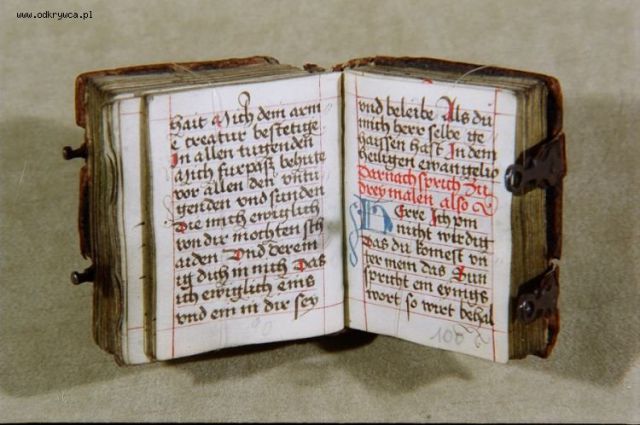 www.odkrywca.pl
hait Mich dein armi
e creatur bestetige
In allen tugenden
Mich furpas behute
vor allen den untu
genden und sunden
Die mich ewiglich
von dir mochten sch
aiden Und verein
ig dich in mich Das
ich ewiglich eins
und ein in dir sey
und beleibe Als du
mich herr selbe ge
haissen hast In dem
heiligen ewangelio
Darnach sprich zu
drey malen also
Herre Ich pin
nicht wirdig
Das du komest un
ter mein das Sun
sprich ein ewigs
wort so wirt behal
100